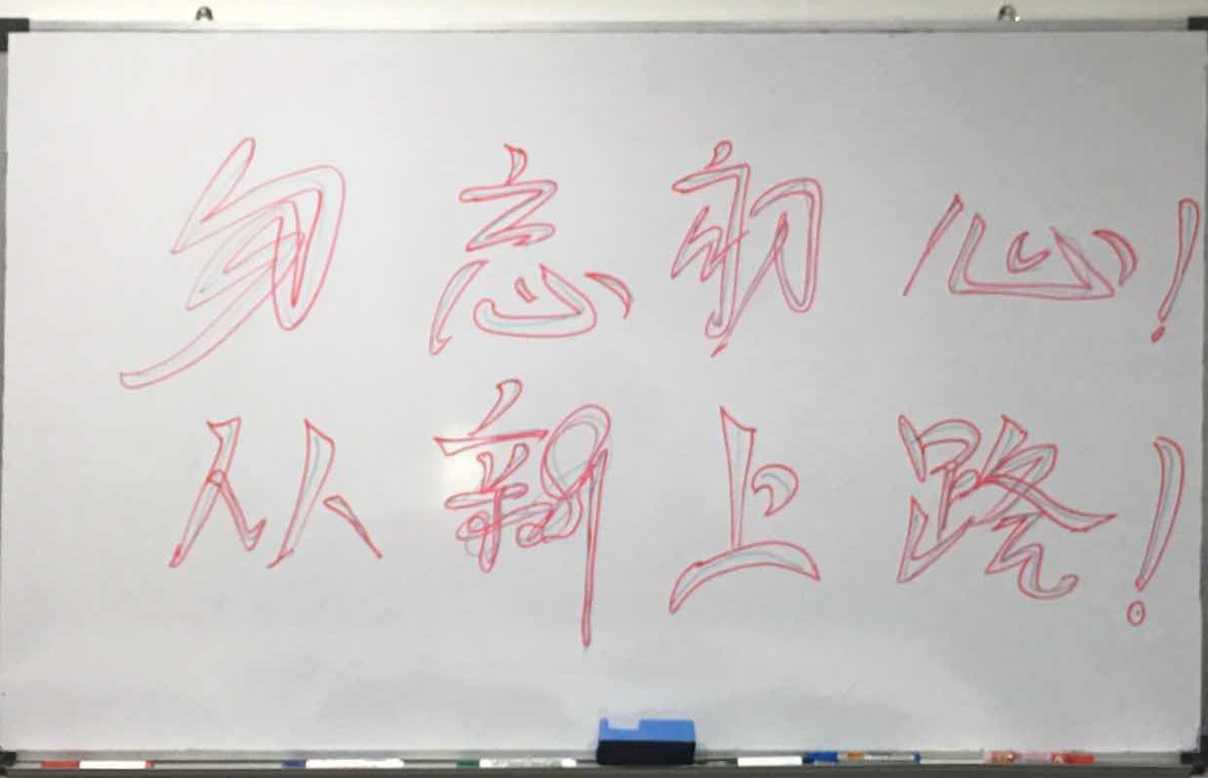 勿忘初心!
从新上路!